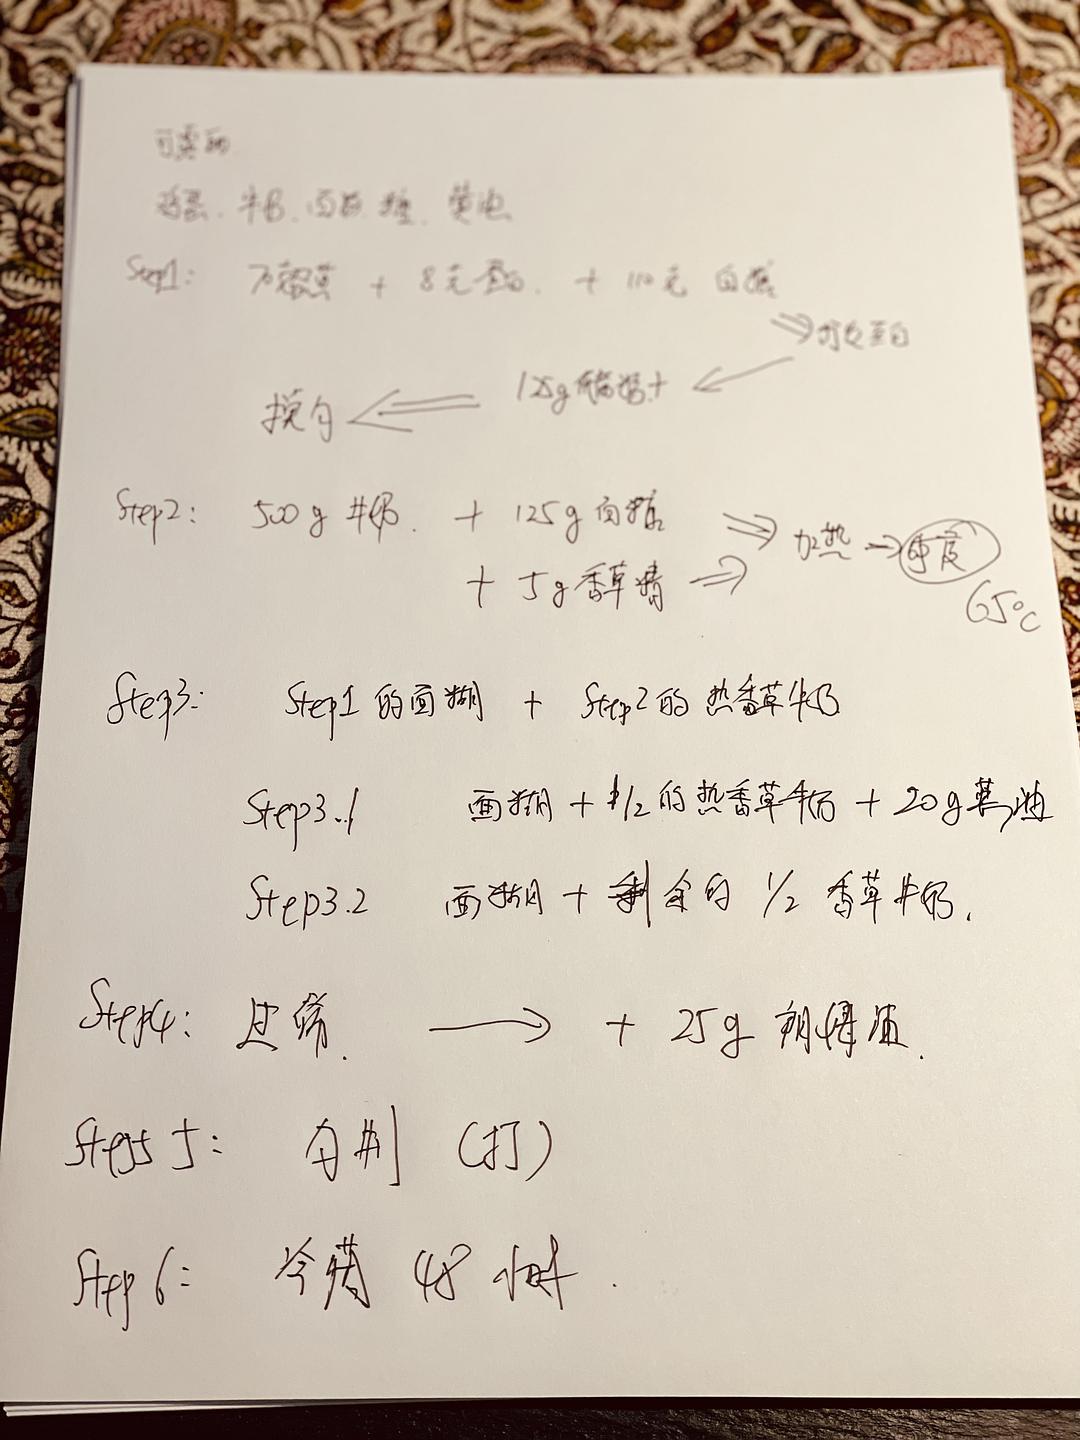 可露丽
鸡蛋、牛奶、面粉、糖、黄油
Step1: 蛋黄 + 8克蛋白 + 110克 白糖
蛋白
125g
Step2: 500g 牛奶. + 125g 白糖 加热 → 温度
+ 5g 香草精
65℃
Step3: Step1 的面糊 + Step2 的热香草牛奶
Step3.1 面糊 + 1/2 的热香草牛奶 + 20g 黄油
Step3.2 面糊 + 剩余的 1/2 香草牛奶.
Step4: 过筛. → + 25g 朗姆酒.
Step 5: (打)
Step 6: 冷藏 48 小时.